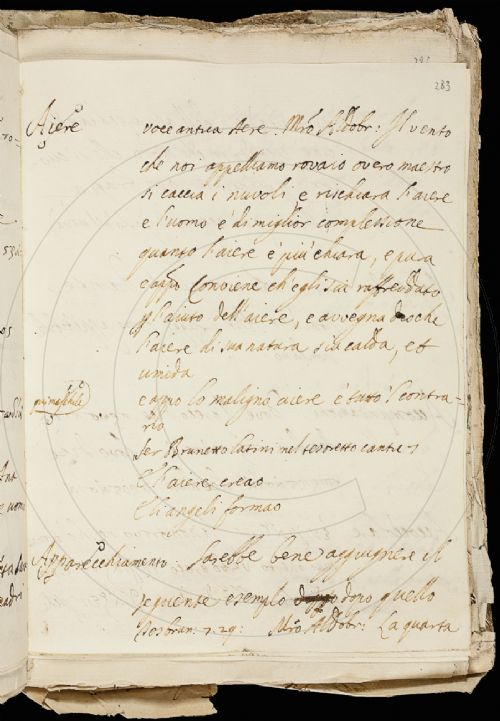 283
Aiere voce antica Aere. Mro Aldobr: Il vento
che noi appelliamo rovaio overo maestro
si caccia i nuvoli e rischiara l'aiere
e l'uomo è di miglior complessione
quanto l'aiere è più chiara, e pura
e app.o Conviene ch'egli sia raffreddato
p l'aiuto dell'aiere, e avvegna che
l'aiere di sua natura sia calda, et
umida
e apro lo maligno aiere è tutto 'l contra-
rio
Ser Brunetto latini nel tesoretto canta 5
E l'aiere creao
E li angeli formao
Apparecchiamento sarebbe bene aggiugnere il
seguente esempio dopo quello
Mro Aldobr: La quarta